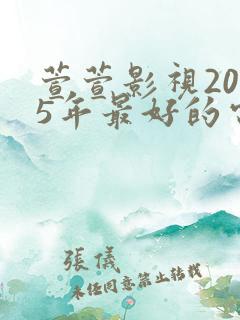 萱萱影視20
5年最好的
張儀
未經同意禁止轉載